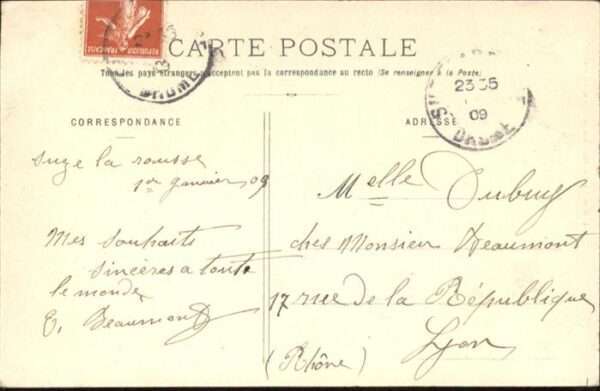 REPUBLIQUE FRANÇAISE
DROME
CARTE POSTALE
Tous les pays étrangers n'acceptent pas la correspondance au recto (Se renseigner à la Poste)
CORRESPONDANCE
ADRESSE
23 35
09
DROME
Suze la rousse
1er Janvier 09
Mes Souhaits
sincères a toute
le monde
E. Beaumont
Melle Dubuy
chez Monsieur Deaumont
17 rue de la République
Lyon
(Rhône)